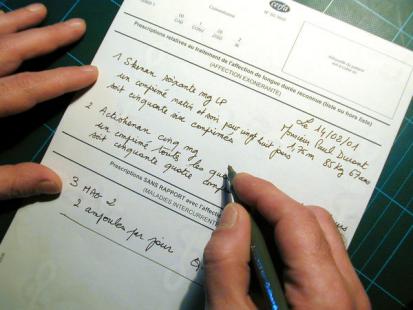 cerfa
Prescriptions relatives au traitement de l'affection de longue durée reconnue (liste ou hors liste)
(AFFECTION EXONERANTE)
Le 14/02/01
Monsieur Paul Durant
1,75m 85kg 67ans
1 Skenan soixante mg LP
un comprimé matin et soir par vingt huit jours
soit cinquante six comprimés
2 Actiskenan cinq mg
un comprimé toutes les
soit cinquante quatre
jours
Prescriptions SANS RAPPORT avec l'affection
(MALADIES INTERCURRENTES
3 MAG 2
2 ampoules par jour